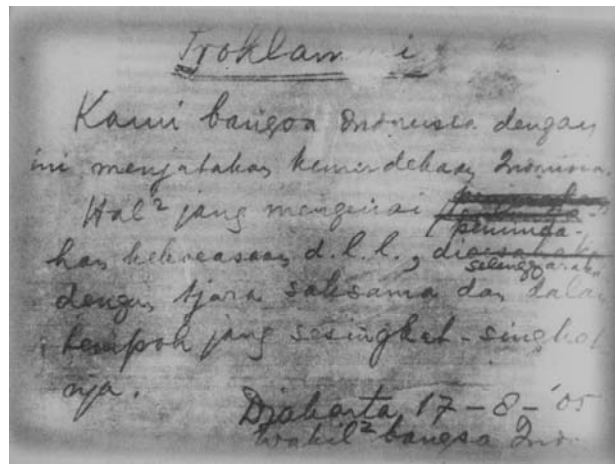 Proklamasi
Kami bangsa Indonesia dengan
ini menjatakan kemerdekaan Indonesia.
Hal² jang mengenai
peminda-
han kekoeasaan d.l.l.,
selenggarakan
dengan tjara saksama dan dalam
tempoh jang sesingkat-singkat
nja.
Djakarta, 17 - 8 - '05
Wakil² bangsa Indo